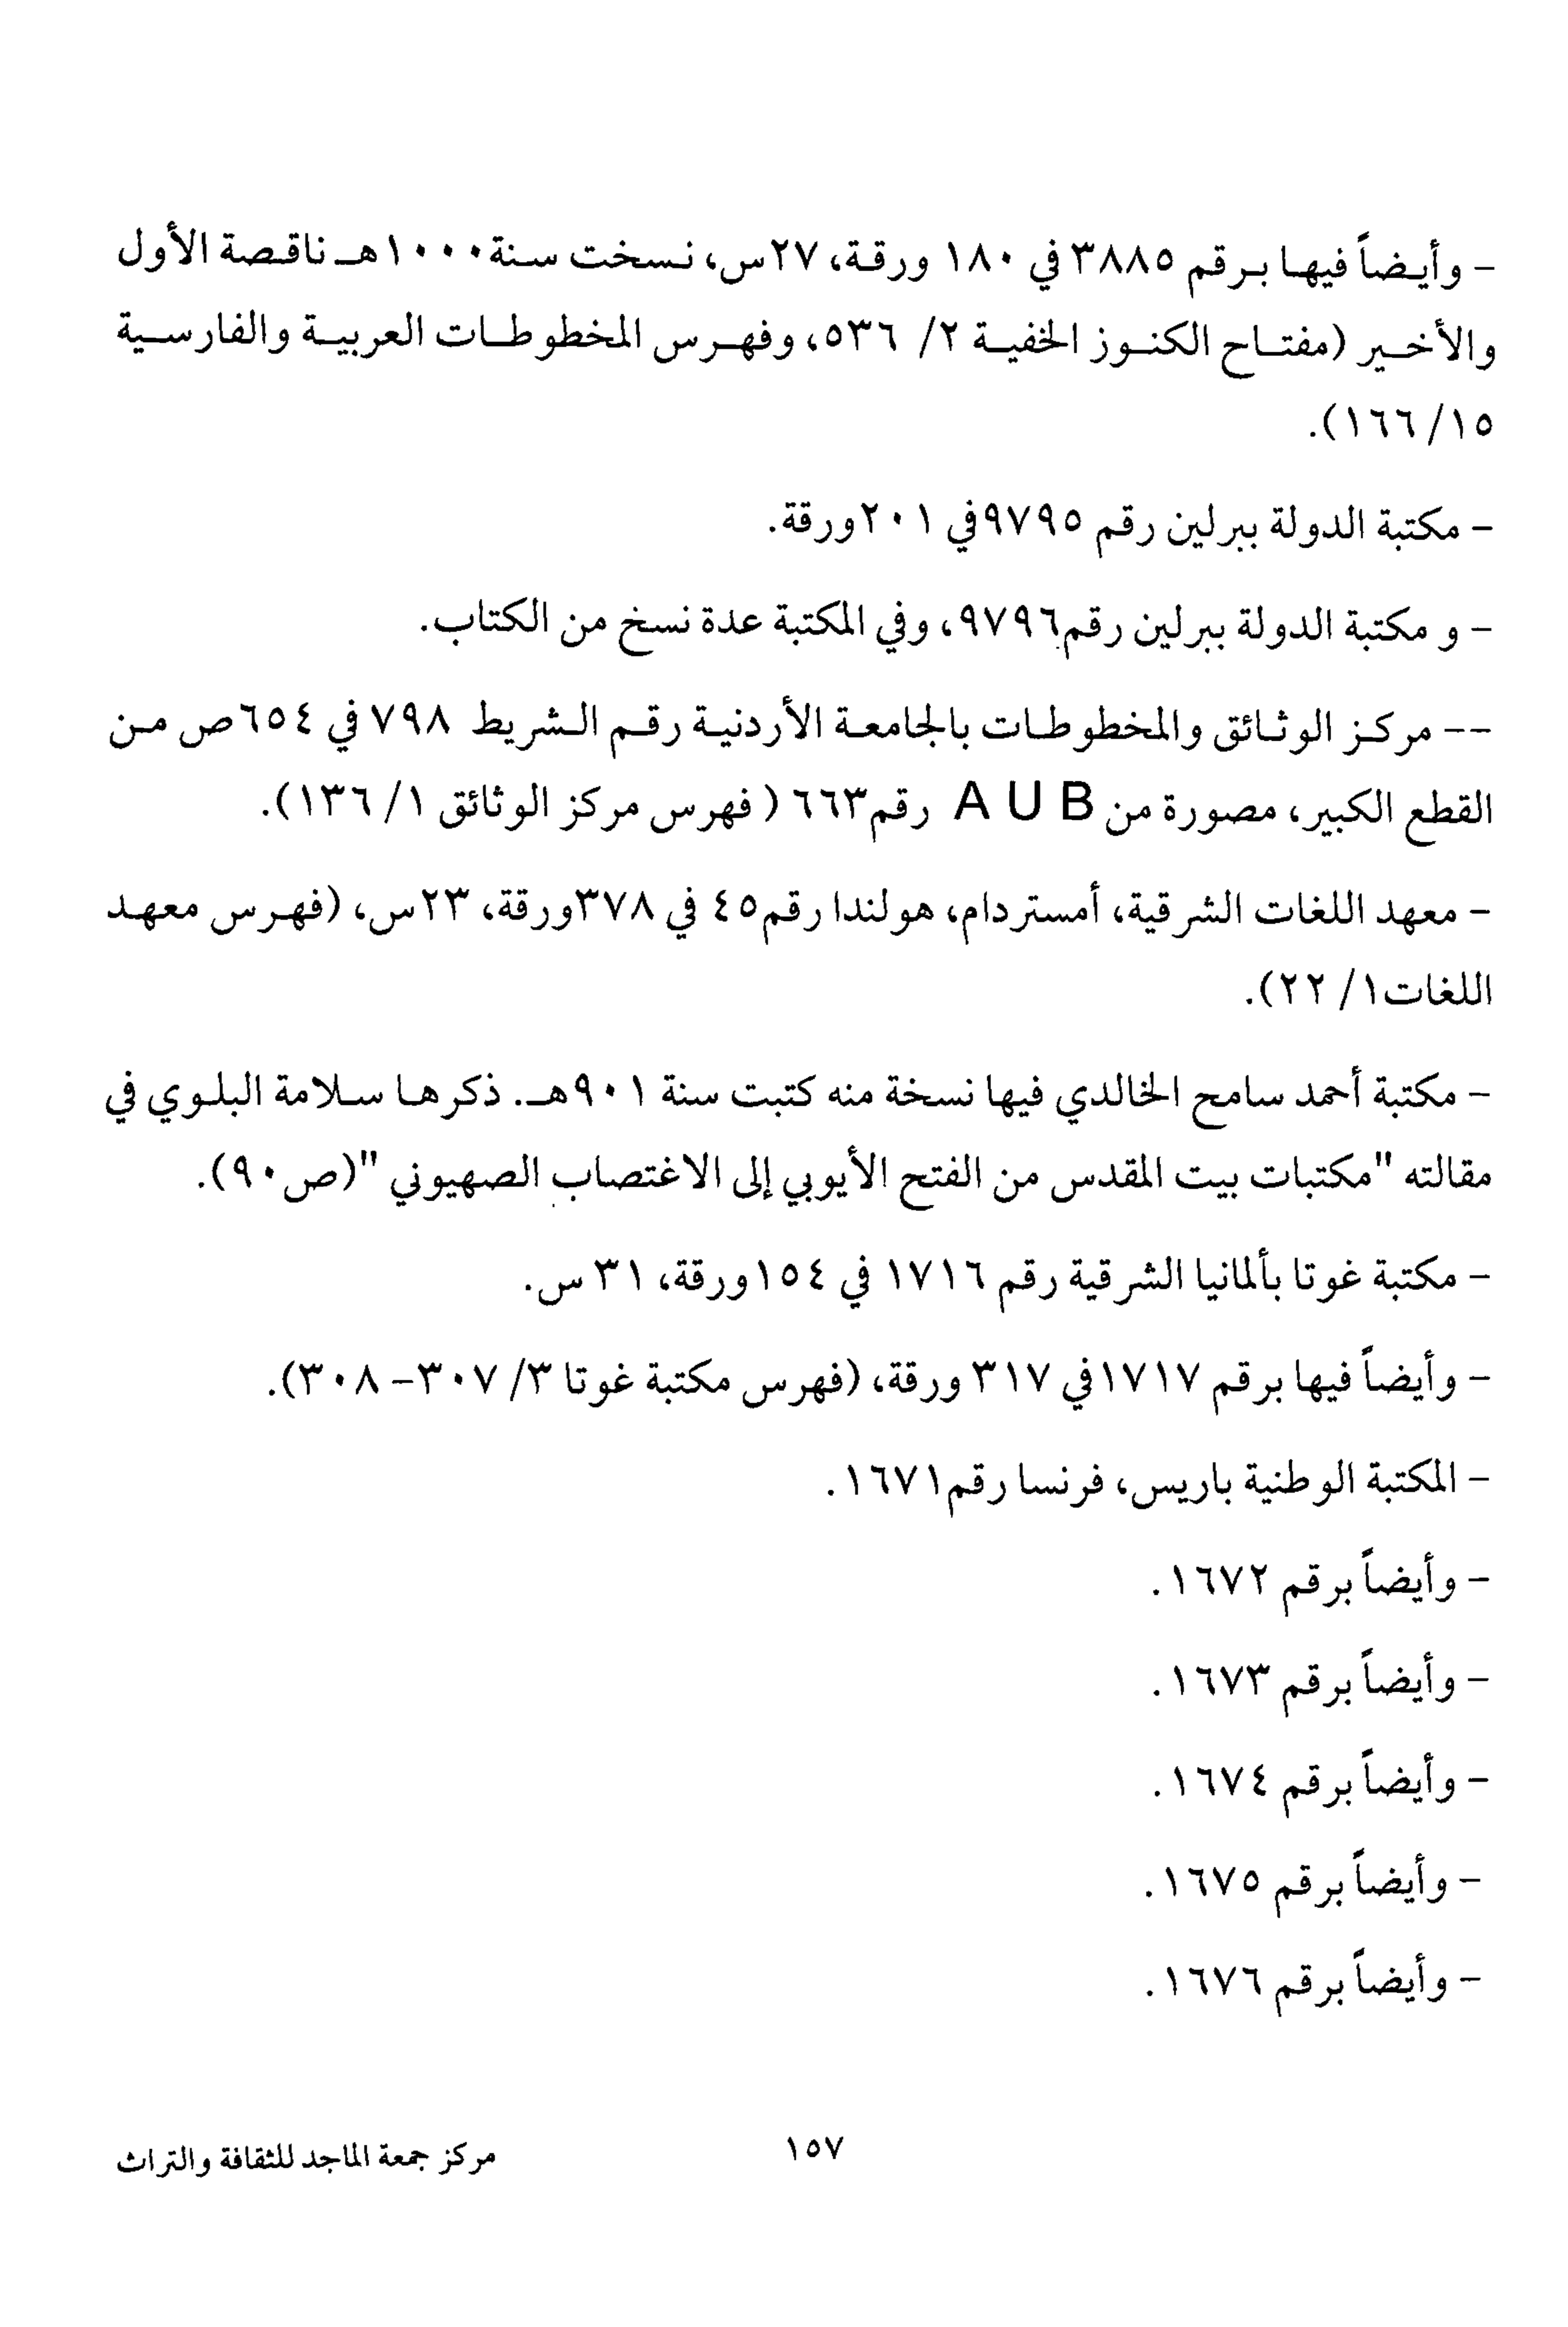 - وأيضاً فيها برقم ٣٨٨٥ في ١٨٠ ورقة، ٢٧س، نسخت سنة ١٠٠٠هـ ناقصة الأول
والأخير (مفتاح الكنوز الخفية ٢/ ٥٣٦، وفهرس المخطوطات العربية والفارسية
١٥/ ١٦٦).
- مكتبة الدولة ببرلين رقم ٩٧٩٥في ٢٠١ورقة.
- و مكتبة الدولة ببرلين رقم٩٧٩٦، وفي المكتبة عدة نسخ من الكتاب.
-- مركز الوثائق والمخطوطات بالجامعة الأردنية رقم الشريط ٧٩٨ في ٦٥٤ص من
القطع الكبير، مصورة من A U B رقم٦٦٣ ( فهرس مركز الوثائق ١/ ١٣٦).
- معهد اللغات الشرقية، أمستردام، هولندا رقم٤٥ في ٣٧٨ورقة، ٢٣س، (فهرس معهد
اللغات١/ ٢٢).
- مكتبة أحمد سامح الخالدي فيها نسخة منه كتبت سنة ٩٠١هـ. ذكرها سلامة البلوي في
مقالته "مكتبات بيت المقدس من الفتح الأيوبي إلى الاغتصاب الصهيوني "(ص٩٠).
- مكتبة غوتا بألمانيا الشرقية رقم ١٧١٦ في ١٥٤ورقة، ٣١ س.
- وأيضاً فيها برقم ١٧١٧في ٣١٧ ورقة، (فهرس مكتبة غوتا ٣/ ٣٠٧- ٣٠٨).
- المكتبة الوطنية باريس، فرنسا رقم١٦٧١.
- وأيضاً برقم ١٦٧٢.
- وأيضاً برقم ١٦٧٣.
- وأيضاً برقم ١٦٧٤.
- وأيضاً برقم ١٦٧٥.
- وأيضاً برقم ١٦٧٦.
١٥٧
مركز جمعة الماجد للثقافة والتراث